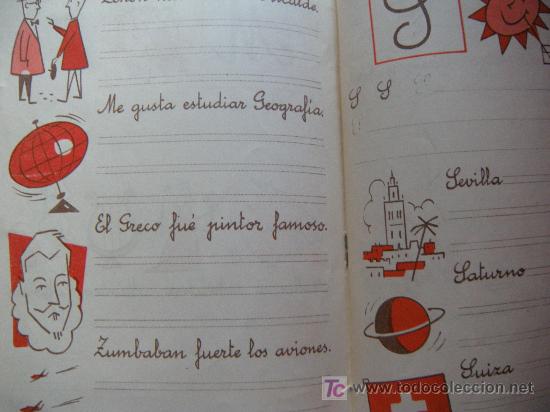 Me gusta estudiar Geografía.
El Greco fué pintor famoso.
Zumbaban fuerte los aviones.
S
S S S
Sevilla
Saturno
Suiza
TC www.todocoleccion.net